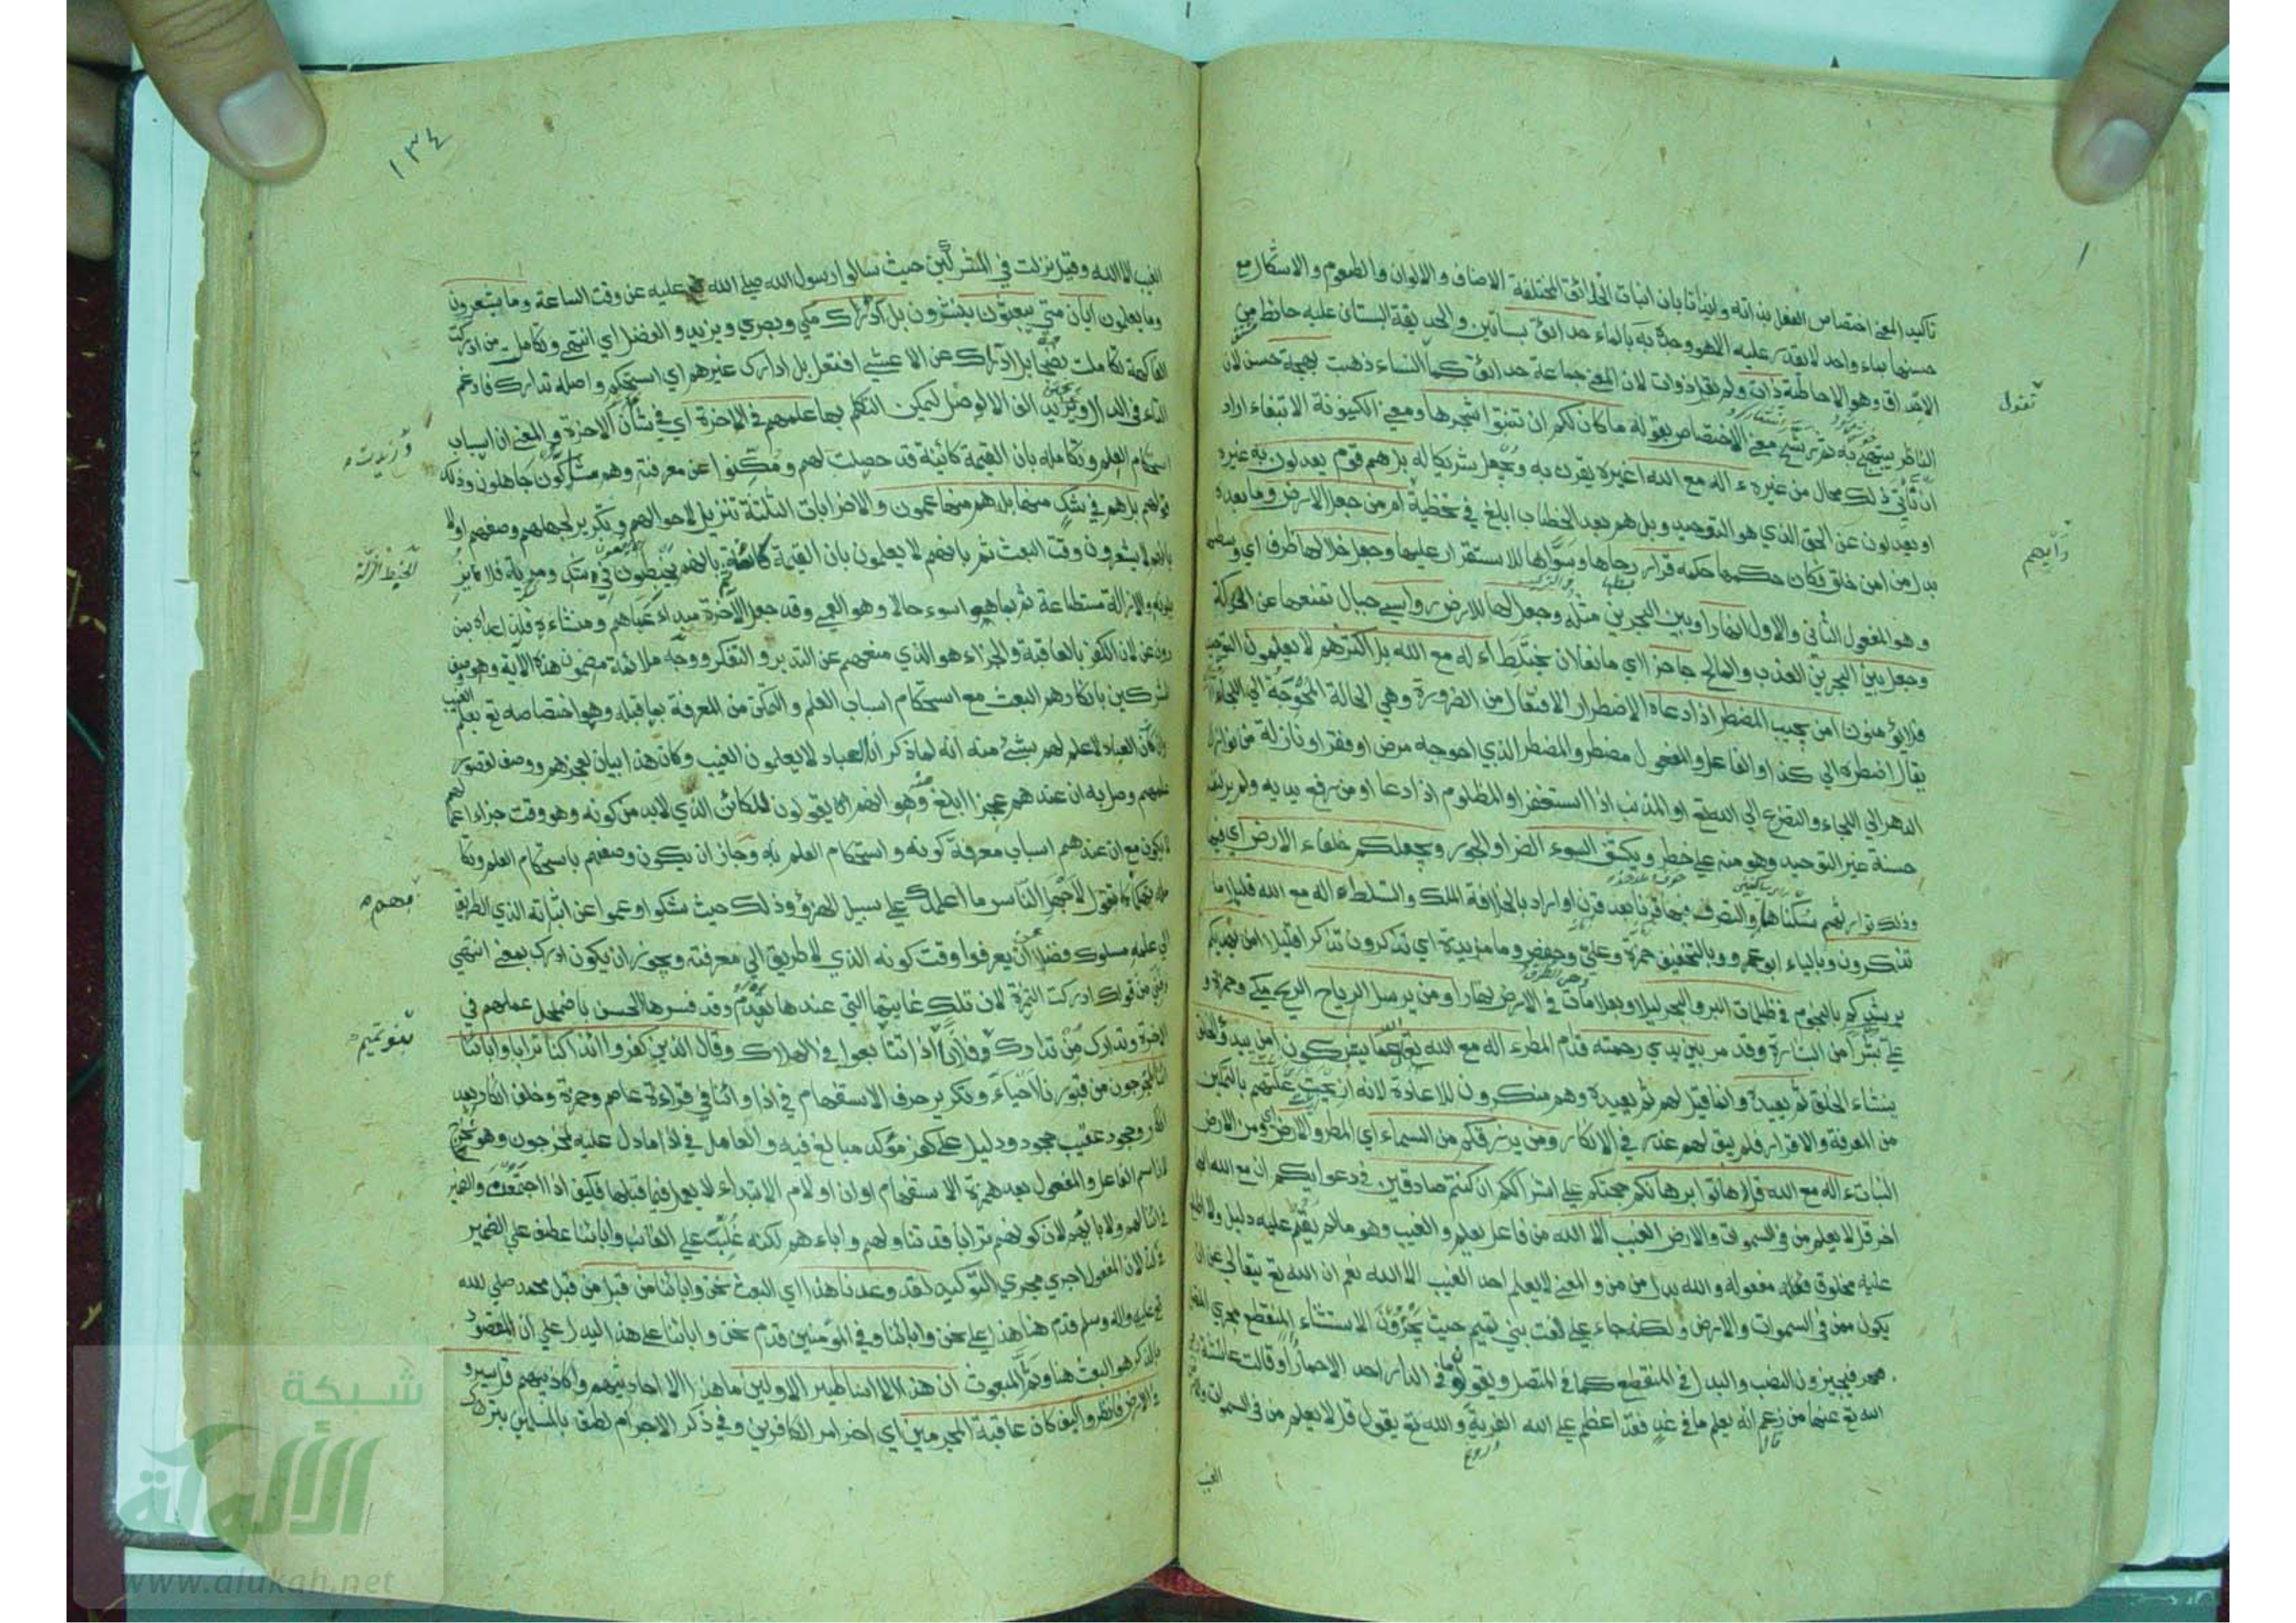 تاكيد المعنى اختصاص الفعل بذاته وايذانا بان انبات الحدائق المختلفة الاصناف والالوان والطعوم والاشكال مع
حسنها بماء واحد لا يقدر عليه الا هو وحده به بالماء حدائق بساتين والحديقة البستان عليه حائط من
الاحداق وهو الاحاطة ذات ولم يقل ذوات لان المعنى جماعة حدائق كما النساء ذهبت بهجة حسن لان
الناظر يبتهج به ثم رشح معنى الاختصاص بقوله ما كان لكم ان تنبتوا شجرها ومعنى الكينونة الانبغاء اراد
ان تأتي ذلك محال من غيره ءاله مع الله اغيره يقرن به ويجعل شريكا له بل هم قوم يعدلون به غيره
او يعدلون عن الحق الذي هو التوحيد وبل هم بعد الخطاب ابلغ في تخطية امن جعل الارض وما بعده
بدل من امن خلق فكان حكمها حكمه قرارا دحاها وسواها للاستقرار عليها وجعل خلالها ظرف اي وسطها
وهو المفعول الثاني والاول انهارا وبين البحرين مثله وجعل لها للارض رواسي جبال تمنعها عن الحركة
وجعل بين البحرين العذب والمالح حاجزا اي مانعا لان يختلطا ءاله مع الله بل اكثرهم لا يعلمون التوحيد
فلا يؤمنون امن يجيب المضطر اذا دعاه الاضطرار الافتعال من الضرورة وهي الحالة المحوجة الى اللجاء
يقال اضطره الي كذا والفاعل والمفعول مضطر والمضطر الذي احوجه مرض او فقر او نازلة من نوازل
الدهر الي اللجاء والتضرع الي الله تع او المذنب اذا استغفر او المظلوم اذا دعا او من رفع يديه ولم ير لنفسه
حسنة غير التوحيد وهو منه على خطر ويكشف السوء الضر او الجور ويجعلكم خلفاء الارض اي فيها
وذلك توارثهم سكناها والتصرف فيها قرنا بعد قرن او اراد بالخلافة الملك والتسلط ءاله مع الله قليلا ما
تذكرون وبالياء ابو عمرو وبالتخفيف حمزة وعلي وحفص وما مزيدة اي تذكرون تذكرا قليلا امن يهديكم
يرشدكم بالنجوم في ظلمات البر والبحر ليلا وبعلامات في الارض نهارا ومن يرسل الرياح الريح مكي وحمزة و
علي بشرا من البشارة وقد مر بين يدي رحمته قدام المطر ءاله مع الله تعالى الله عما يشركون امن يبدؤ الخلق
ينشاء الخلق ثم يعيده وانما قيل لهم ثم يعيده وهم منكرون للاعادة لانه ازيحت علتهم بالتمكين
من المعرفة والاقرار فلم يبق لهم عذر في الانكار ومن يرزقكم من السماء اي المطر والارض ومن الارض
النبات ءاله مع الله قل هاتوا برهانكم حجتكم علي اشراككم ان كنتم صادقين في دعوايكم ان مع الله الها
اخر قل لا يعلم من في السموات والارض الغيب الا الله من فاعل يعلم والغيب وهو ما لم يقم عليه دليل ولا اطلع
عليه مخلوق مفعوله والله بدل من من والمعنى لا يعلم احد الغيب الا الله نعم ان الله تع يتعالى عن ان
يكون ممن في السموات والارض ولكنه جاء علي لغت بني تميم حيث يجرون الاستثناء المنقطع مجرى المتصل
فيجيزون النصب والبدل في المنقطع كما في المتصل ويقولون ما في الدار احد الا حمارا وقالت عائشة رضي
الله تع عنها من زعم انه يعلم ما في غد فقد اعظم علي الله الفرية والله تع يقول قل لا يعلم من في السموات والارض
الغيب
تقول
١٣٤
الغيب الا الله وقيل نزلت في المشركين حيث سالوا رسول الله صلى الله عليه عن وقت الساعة وما يشعرون
وما يعلمون ايان متي يبعثون ينشرون بل ادرك مكي وبصري ويزيد والمفضل اي انتهى وتكامل من ادركت
الفاكهة تكاملت نضجا بل ادرك عن الاعشي افتعل بل ادارك غيرهم اي استحكم واصله تدارك فادغم
التاء في الدال وزيد الف الوصل ليمكن التكلم بها علمهم في الاخرة اي في شأن الاخرة والمعنى ان اسباب
استحكام العلم وتكامله بان القيمة كائنة قد حصلت لهم ومكنوا عن معرفته وهم شاكون جاهلون وذلك
قولهم بل هم في شك منها بل هم منها عمون والاضرابات الثلثة تنزيل لاحوالهم وتكرير لجهلهم وصفهم اولا
بانهم لا يشعرون وقت البعث ثم بانهم لا يعلمون بان القيمة كائنة ثم بانهم يخبطون في شك ومرية فلا
يزيلونه والازالة مستطاعة ثم بما هو اسوء حالا وهو العمي وقد جعل الآخرة مبداء عماهم ومنشاءه فلذا عداه بمن
دون عن لان الكفر بالعاقبة والجزاء هو الذي منعهم عن التدبر والتفكر ووجه ملائمة مضمون هذه الآية وهو وصف
المشركين بانكارهم البعث مع استحكام اسباب العلم والتمكن من المعرفة بما قبله وهو اختصاصه تع بعلم الغيب
وان العباد لا علم لهم بشئ منه انه لما ذكر ان العباد لا يعلمون الغيب وكان هذا بيان لعجزهم ووصف لقصور
علمهم وصل به ان عندهم عجزا ابلغ منه وهو انهم يقولون للكائن الذي لا بد من كونه وهو وقت جزاء اعمالهم
لا يكون مع ان عندهم اسباب معرفة كونه واستحكام العلم به وجاز ان يكون وصفهم باستحكام العلم وتكا
مله تهكما كما تقول لاجهل الناس ما اعلمك علي سبيل الهزؤ وذلك حيث شكوا وعموا عن اثباته الذي الطريق
الي علمه مسلوك فضلا عن ان يعرفوا وقت كونه الذي لا طريق الي معرفته ويجوز ان يكون ادرك بمعنى انتهي
وفني من قولك ادركت الثمرة لان تلك غايتها التي عندها تعدم وقد فسرها الحسن باضمحل علمهم في
الاخرة وتدارك من تدارك بنو فلان اذا تتابعوا في الهلاك وقال الذين كفروا ائذا كنا ترابا واباؤنا
ائنا لمخرجون من قبورنا احياء وتكرير حرف الاستفهام في اذا وائنا في قراءة عاصم وحمزة وخلف انكار بعد
انكار وجحود عقيب جحود ودليل علي كفر مؤكد مبالغ فيه والعامل في اذا ما دل عليه لمخرجون وهو نخرج
لان اسم الفاعل والمفعول بعد همزة الاستفهام او ان او لام الابتداء لا يعمل فيما قبلها فكيف اذا اجتمعن والضمير
في ائنا لهم ولابائهم لان كونهم ترابا قد تناولهم واباءهم لكنه غلبت علي الغائب واباؤنا عطف علي الضمير
في كنا لان المفعول اجري مجري التوكيد لقد وعدنا هذا اي البعث نحن واباؤنا من قبل من قبل محمد صلى الله
تع عليه واله وسلم قدم هنا هذا على نحن واباؤنا وفي المؤمنين قدم نحن واباؤنا على هذا ليدل علي ان المقصود
بالذكر هو البعث هنا وثم المبعوث ان هذا الا اساطير الاولين ما هذا الا احاديثهم واكاذيبهم قل سيروا
في الارض فانظروا كيف كان عاقبة المجرمين اي اخر امر الكافرين وفي ذكر الاجرام لطف بالمسلمين بترك
شبكة
الألوكة
www.alukah.net